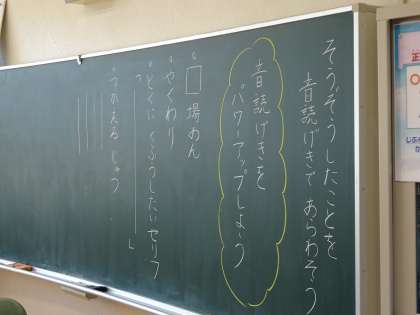 そうぞうしたことを
音読げきで あらわそう
音読げきを
パワーアップしよう
。□場めん
。やくわり
。とくに くふうしたいセリフ
「　　　　　」
。つかえる じゅつ